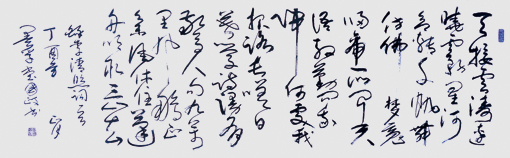 天接雲濤連
曉霧星河
欲轉千帆舞
彷彿夢魂
歸帝所聞天
語殷勤問我
歸何處我
報路長嗟日
暮學詩謾有
驚人句九萬
里風鵬正
舉風休住蓬
舟吹取三山去
錄李清照詞一首
丁酉年